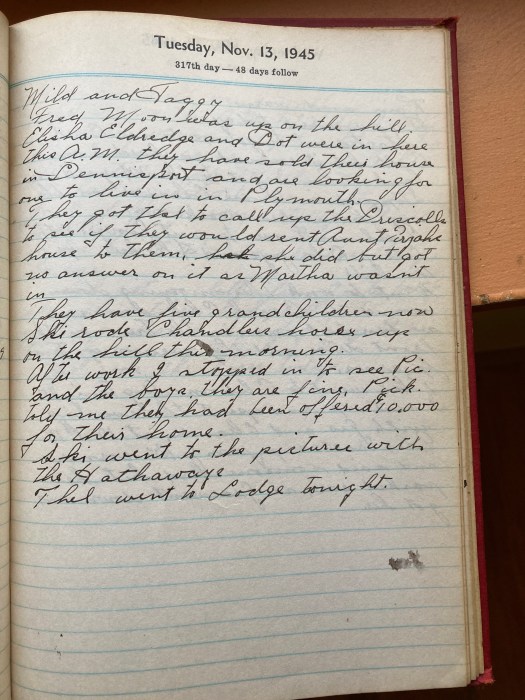 Tuesday, Nov. 13, 1945
317th day — 48 days follow
Mild and Foggy
Fred Moon was up on the hill
Elisha Eldredge and Dot were in here
this A.M. they have sold their house
in Dennisport and are looking for
one to live in in Plymouth.
They got Thel to call up the Driscolls
to see if they would rent Aunt
house to them, she did but got
no answer on it as Martha wasn't
in
They have five grandchildren now
Ski rode Chandlers horse up
on the hill this morning.
After work I stopped in to see Pic.
and the boys, they are fine, Pick.
told me they had been offered 10,000
for their home.
Ski went to the pictures with
the Hathaways
Thel went to Lodge tonight.